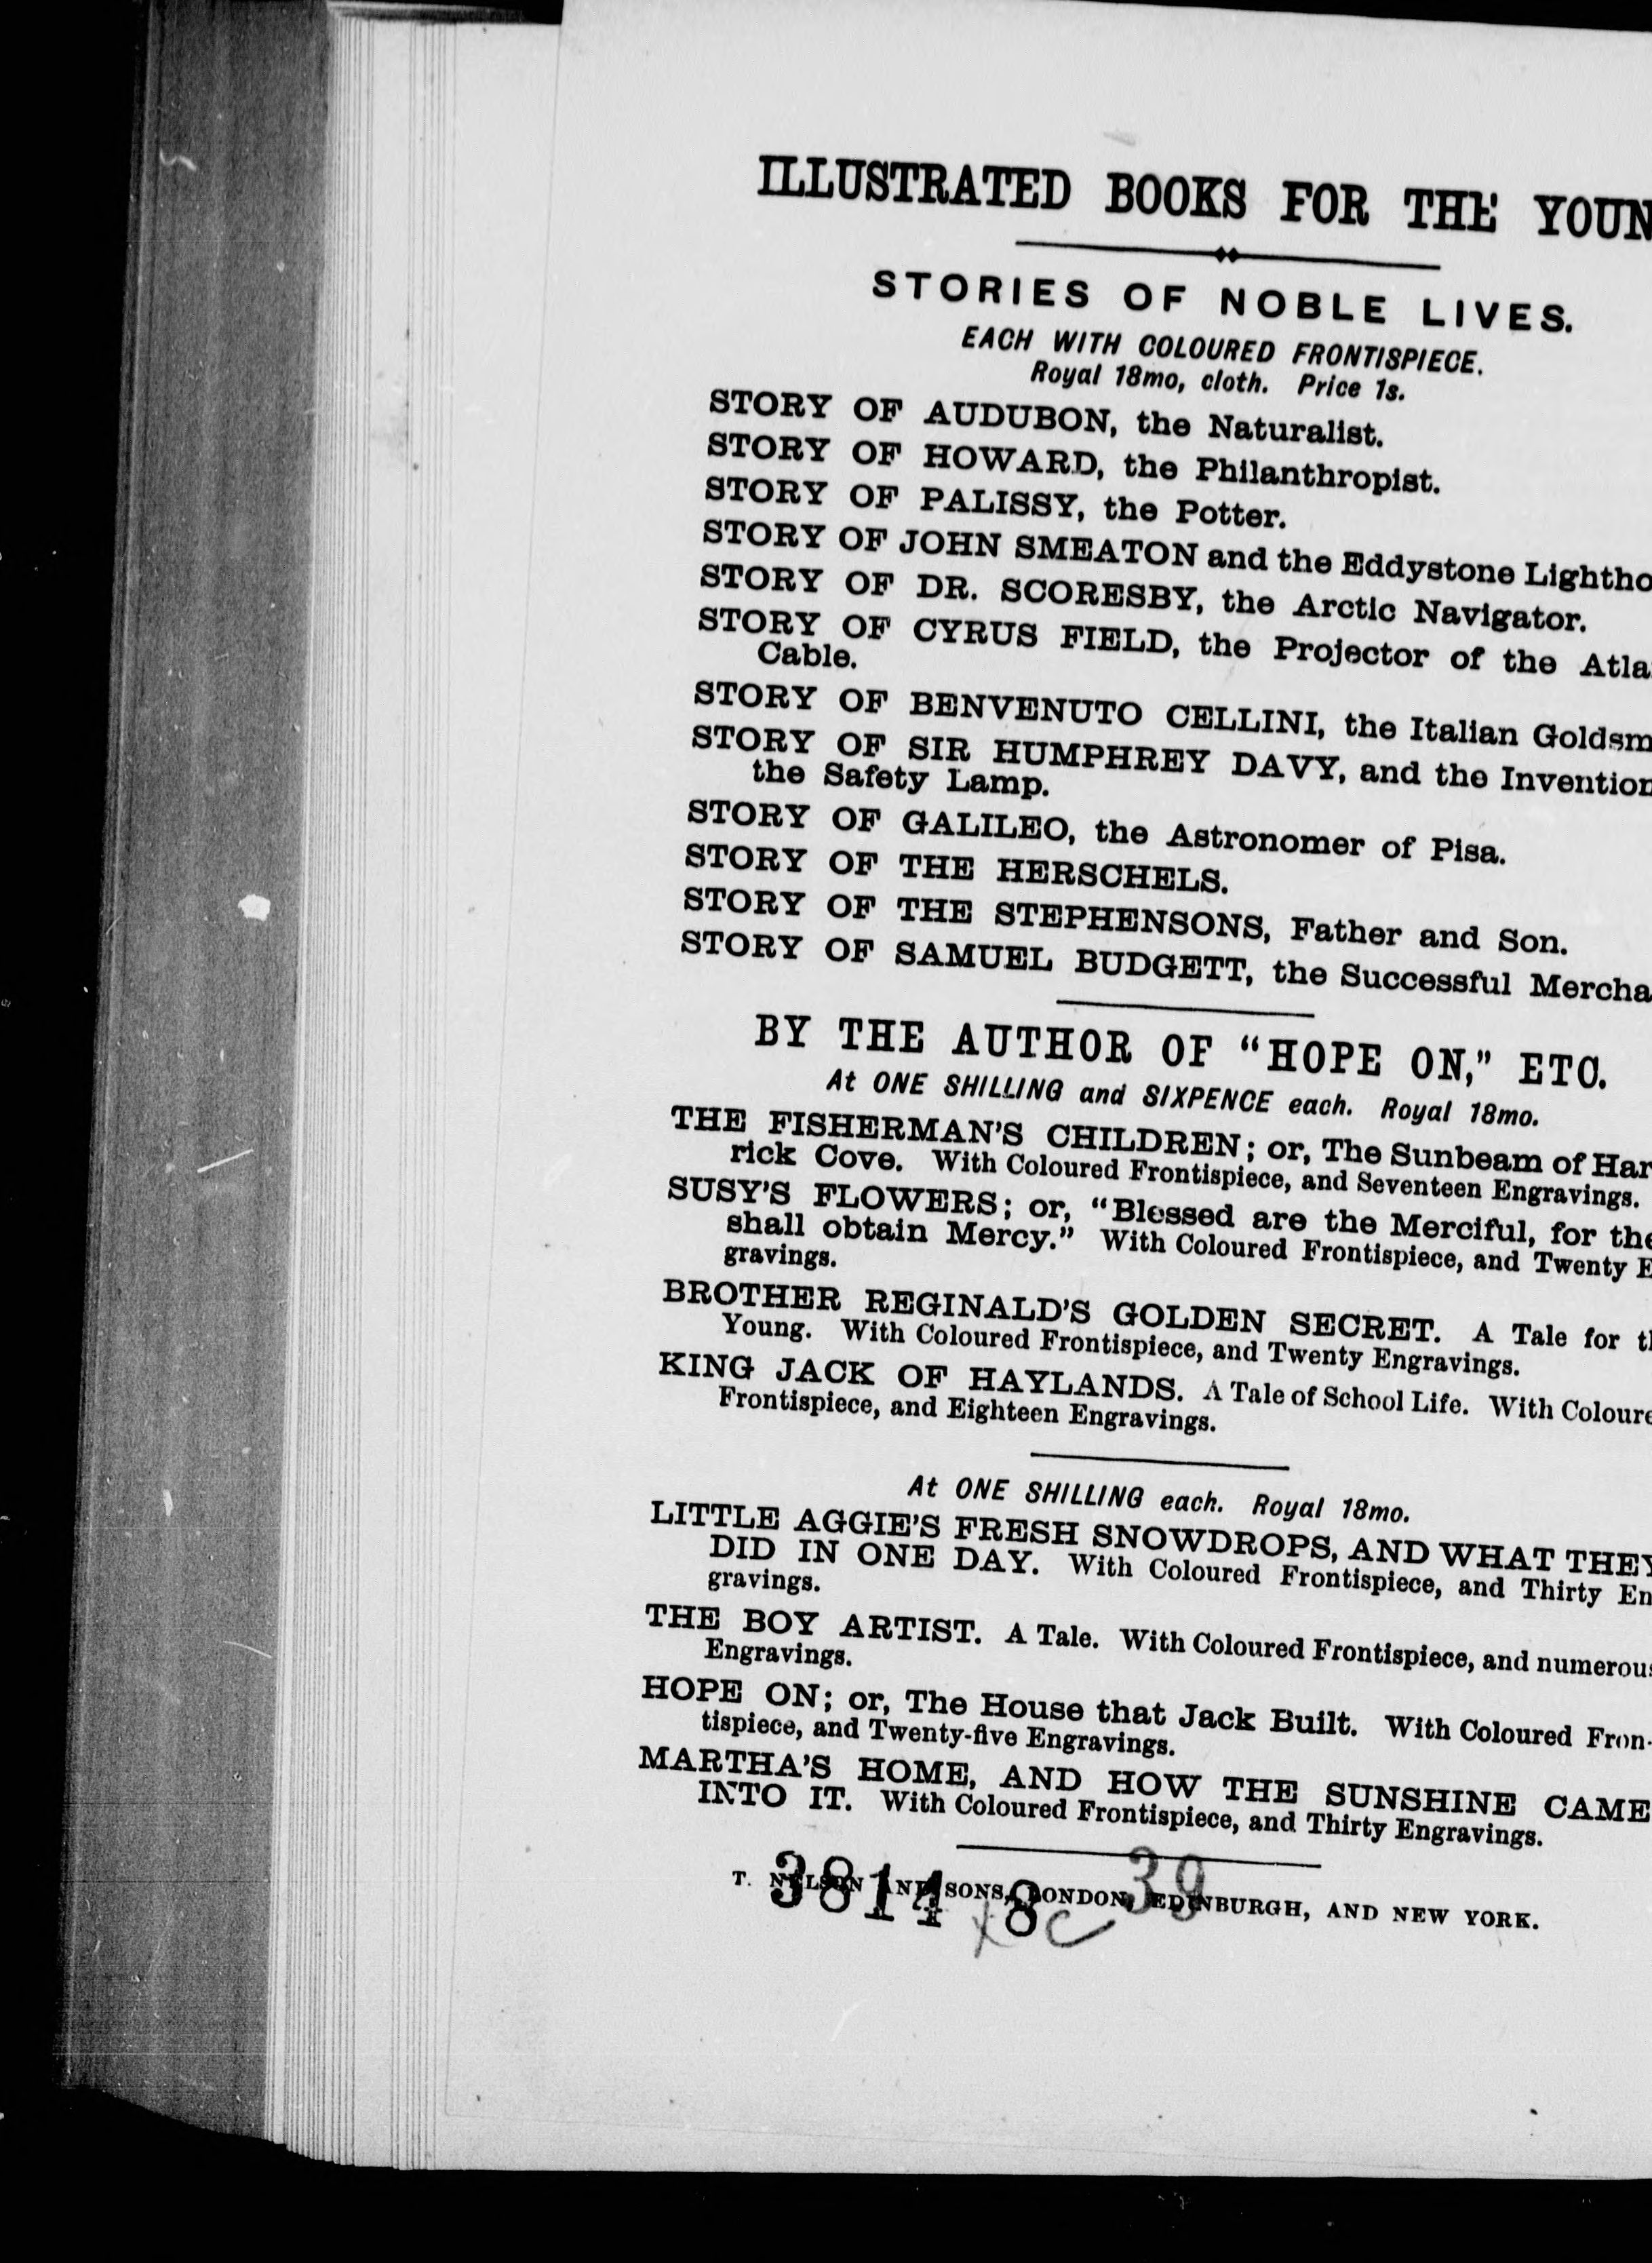 ILLUSTRATED BOOKS FOR THE YOUN
STORIES OF NOBLE LIVES.
EACH WITH COLOURED FRONTISPIECE.
Royal 18mo, cloth. Price 1s.
STORY OF AUDUBON, the Naturalist.
STORY OF HOWARD, the Philanthropist.
STORY OF PALISSY, the Potter.
STORY OF JOHN SMEATON and the Eddystone Lightho
STORY OF DR. SCORESBY, the Arctic Navigator.
STORY OF CYRUS FIELD, the Projector of the Atla
Cable.
STORY OF BENVENUTO CELLINI, the Italian Goldsm
STORY OF SIR HUMPHREY DAVY, and the Invention
the Safety Lamp.
STORY OF GALILEO, the Astronomer of Pisa.
STORY OF THE HERSCHELS.
STORY OF THE STEPHENSONS, Father and Son.
STORY OF SAMUEL BUDGETT, the Successful Mercha
BY THE AUTHOR OF "HOPE ON," ETC.
At ONE SHILLING and SIXPENCE each. Royal 18mo.
THE FISHERMAN'S CHILDREN; or, The Sunbeam of Har
rick Cove. With Coloured Frontispiece, and Seventeen Engravings.
SUSY'S FLOWERS; or, "Blessed are the Merciful, for the
shall obtain Mercy." With Coloured Frontispiece, and Twenty E
gravings.
BROTHER REGINALD'S GOLDEN SECRET. A Tale for th
Young. With Coloured Frontispiece, and Twenty Engravings.
KING JACK OF HAYLANDS. A Tale of School Life. With Coloure
Frontispiece, and Eighteen Engravings.
At ONE SHILLING each. Royal 18mo.
LITTLE AGGIE'S FRESH SNOWDROPS, AND WHAT THEY
DID IN ONE DAY. With Coloured Frontispiece, and Thirty En
gravings.
THE BOY ARTIST. A Tale. With Coloured Frontispiece, and numerous
Engravings.
HOPE ON; or, The House that Jack Built. With Coloured Fron-
tispiece, and Twenty-five Engravings.
MARTHA'S HOME, AND HOW THE SUNSHINE CAME
INTO IT. With Coloured Frontispiece, and Thirty Engravings.
T. NELSON AND SONS, LONDON, EDINBURGH, AND NEW YORK.
3814 8 39